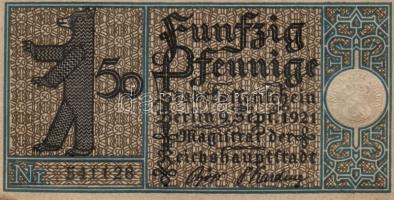 Fünfzig
50 Pfennige
Stadtkassenschein
Berlin 9. Sept. 1921
Magistrat der
Reichshauptstadt
Nr. 541128